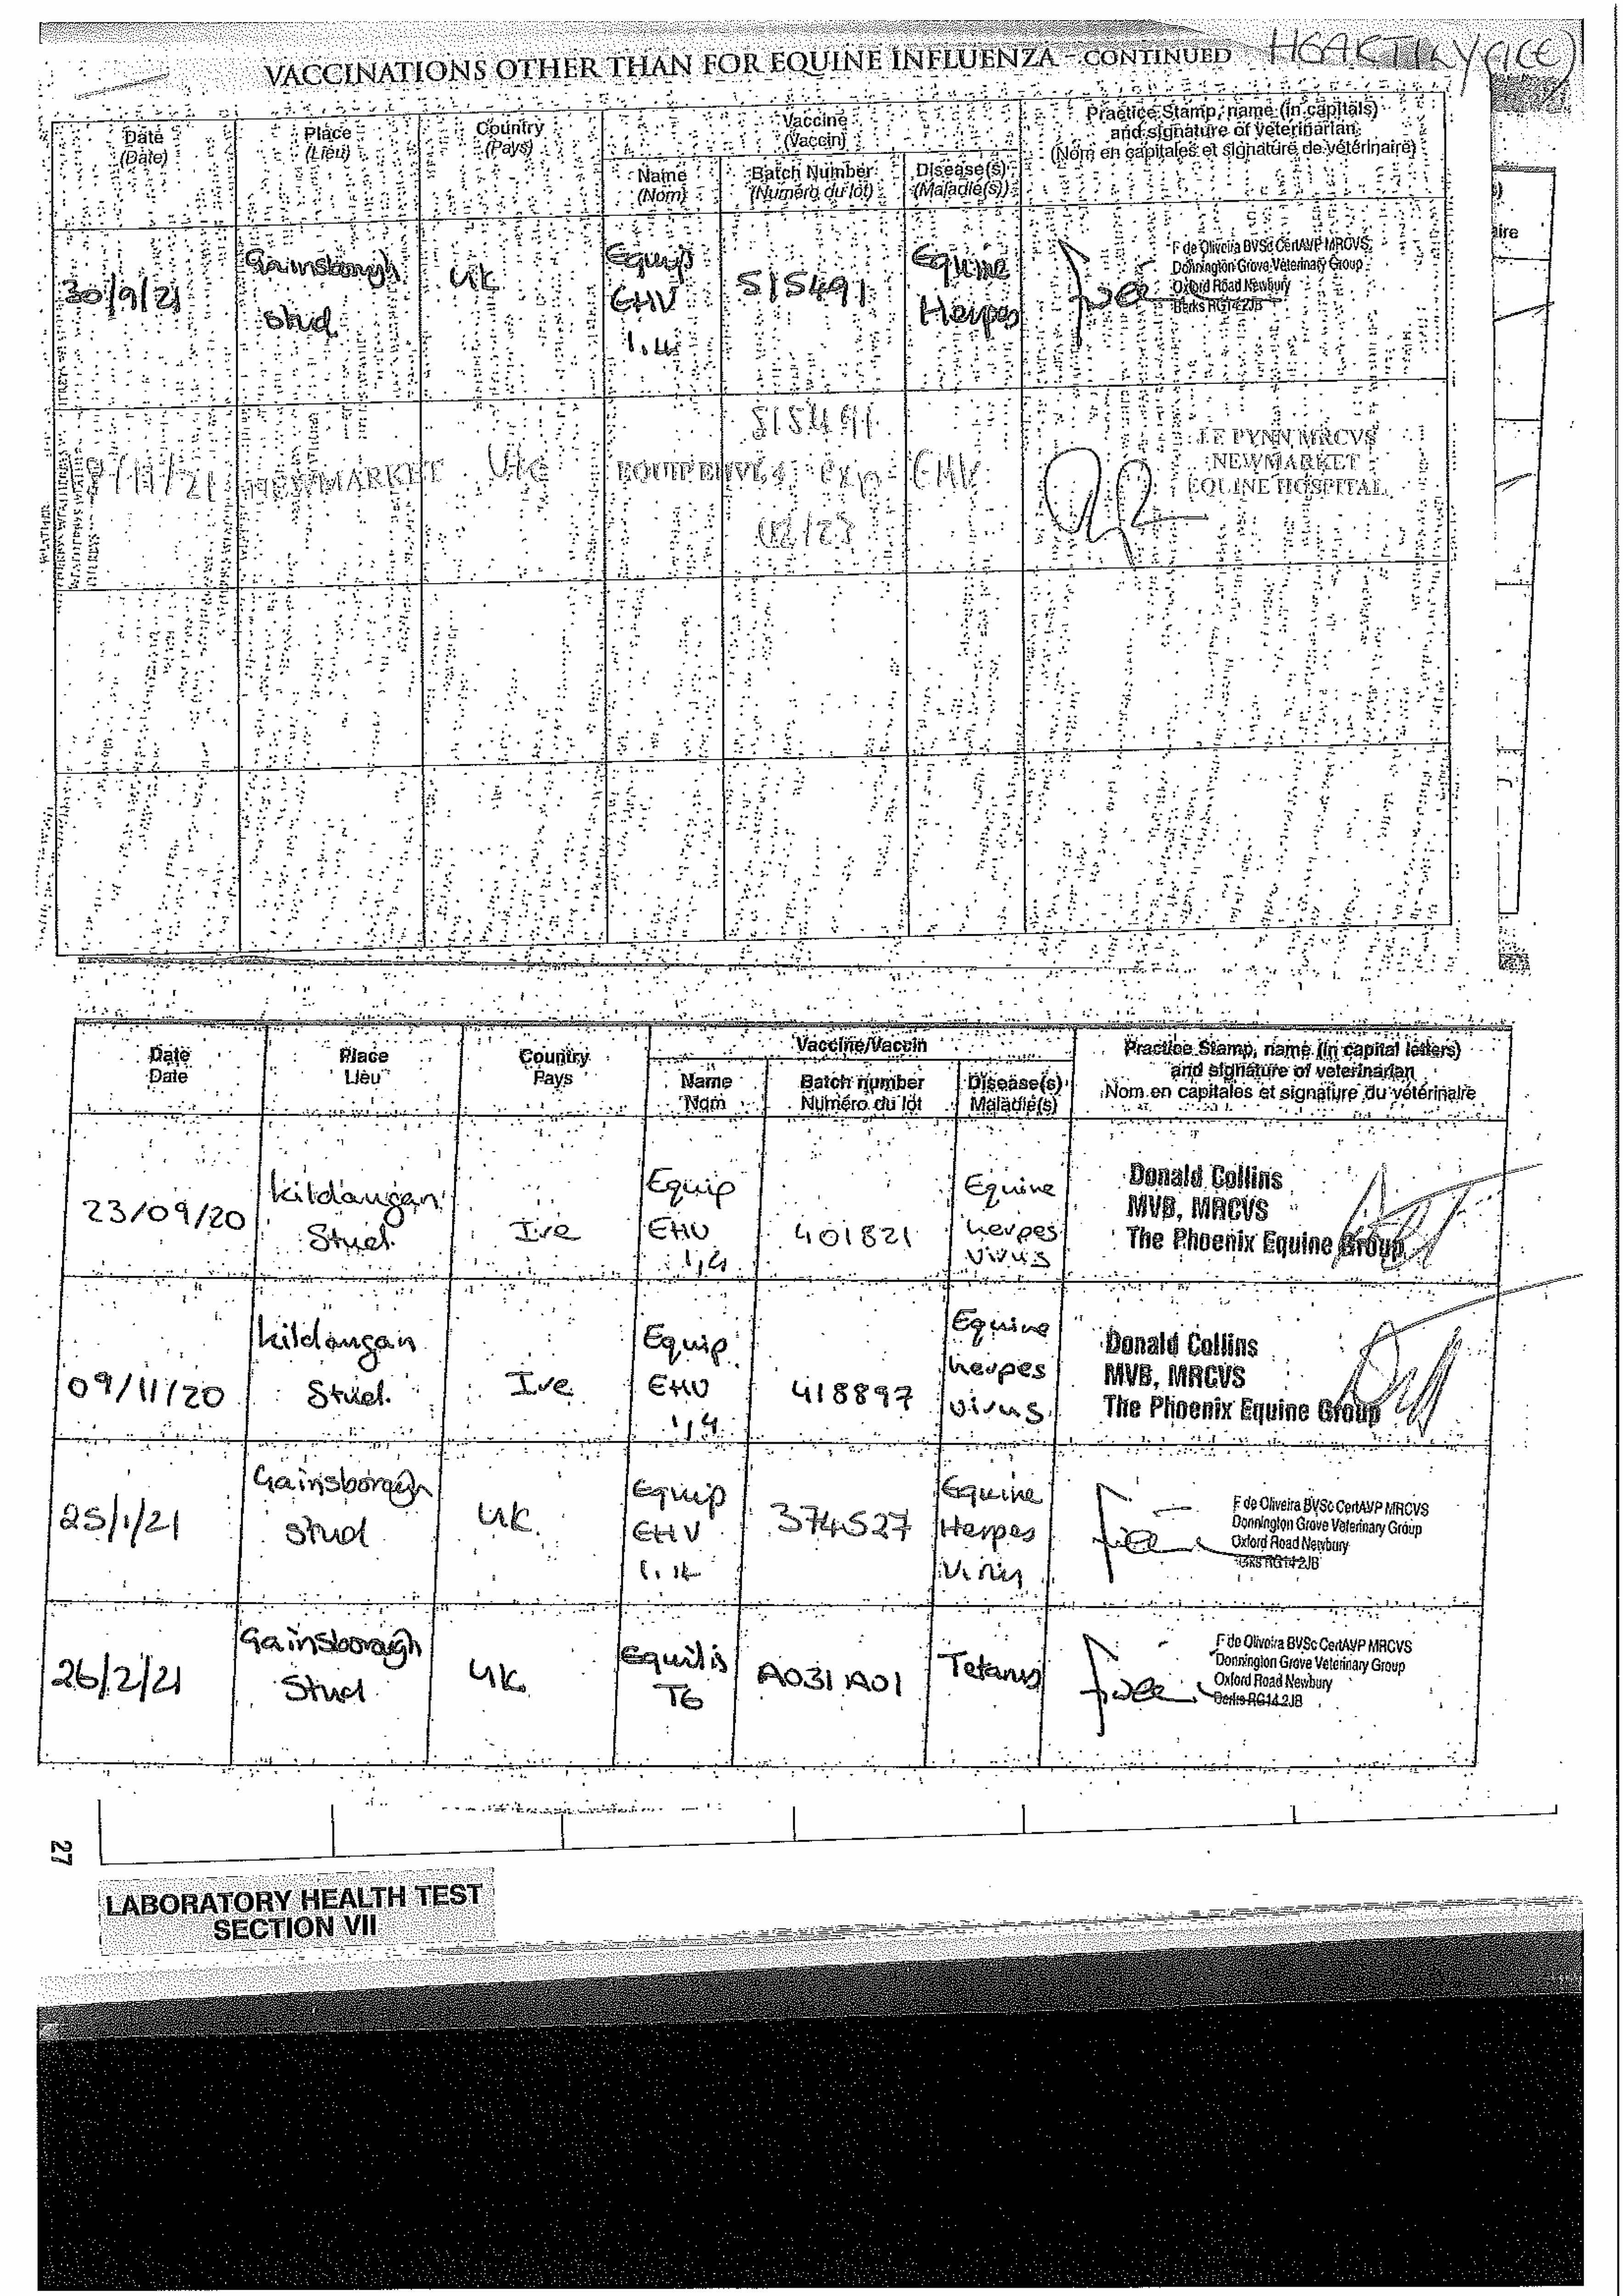 VACCINATIONS OTHER THAN FOR EQUINE INFLUENZA - CONTINUED
(ICE)
Date
(Date)
Place
(Lieu)
Country
(Pays)
Vaccine
(Vaccin)
Name
(Nom)
Batch Number
(Numéro du lot)
Disease(s)
(Maladie(s))
Practice Stamp, name (in capitals)
and signature of veterinarian
(Nom en capitales et signature de vétérinaire)
30/9/21
Gainsborough
Stud
UK
Equip
EHV
1,4
515491
Equine
Herpes
F de Oliveira BVSc CertAVP MRCVS
Donnington Grove Veterinary Group
Oxford Road Newbury
Berks RG14 2JB
/11/21
NEWMARKET
UK
EQUIP EHV1,4
515491
exp
02/23
EHV
J.E PYNN MRCVS
NEWMARKET
EQUINE HOSPITAL
aire
Date
Date
Place
Lieu
Country
Pays
Vaccine/Vaccin
Name
Nom
Batch number
Numéro du lot
Disease(s)
Maladie(s)
Practice Stamp, name (in capital letters)
and signature of veterinarian
Nom en capitales et signature du vétérinaire
23/09/20
Kildangan
Stud
Ire
Equip
EHV
1,4
401821
Equine
herpes
virus
Donald Collins
MVB, MRCVS
The Phoenix Equine Group
09/11/20
Kildangan
Stud
Ire
Equip
EHV
1,4
418897
Equine
herpes
virus
Donald Collins
MVB, MRCVS
The Phoenix Equine Group
25/1/21
Gainsborough
Stud
UK
Equip
EHV
1,4
374527
Equine
Herpes
Virus
F de Oliveira BVSc CertAVP MRCVS
Donnington Grove Veterinary Group
Oxford Road Newbury
Berks RG14 2JB
26/2/21
Gainsborough
Stud
UK
Equilis
Te
A031A01
Tetanus
F de Oliveira BVSc CertAVP MRCVS
Donnington Grove Veterinary Group
Oxford Road Newbury
Berks RG14 2JB
27
LABORATORY HEALTH TEST
SECTION VII